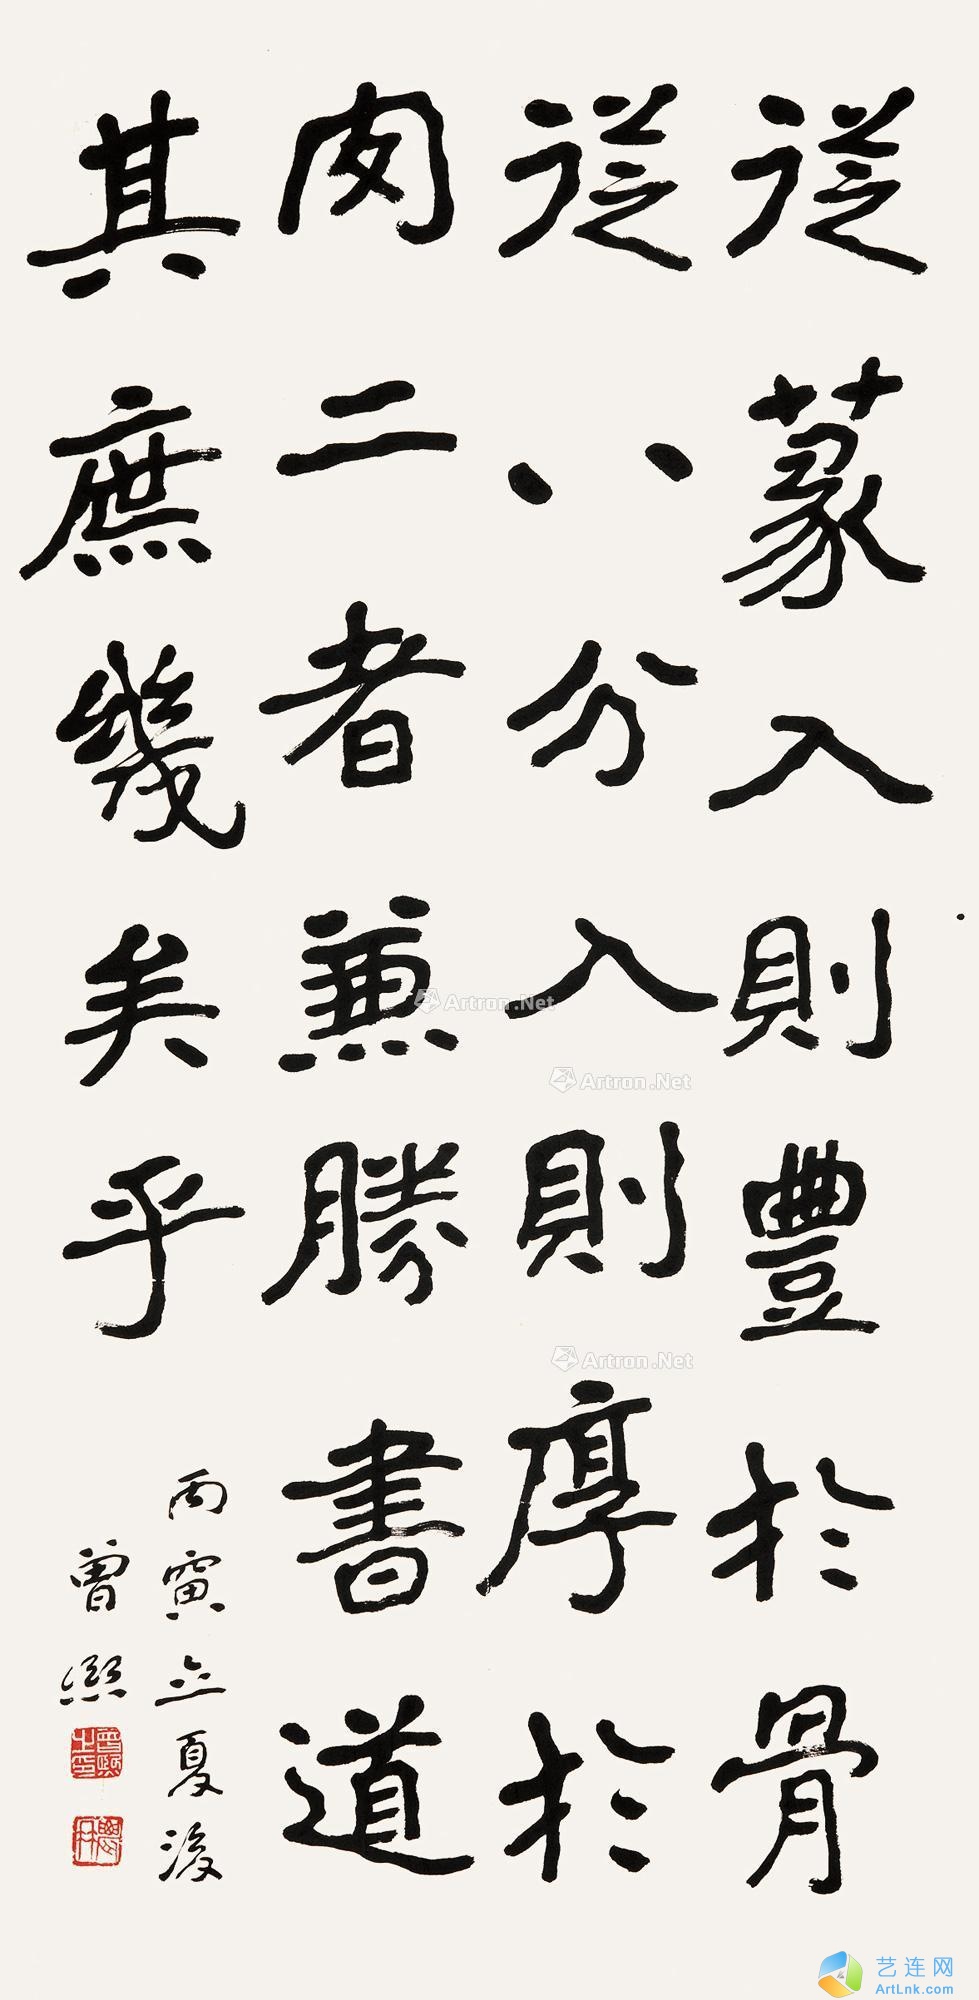 從篆入則豐於骨
從八分入則厚於
肉二者兼勝書道
其庶幾矣乎
丙寅立夏後
曾熙
曾熙之印
農髯
Artron.Net
Artron.Net
Artron.Net
艺连网
ArtLnk.com